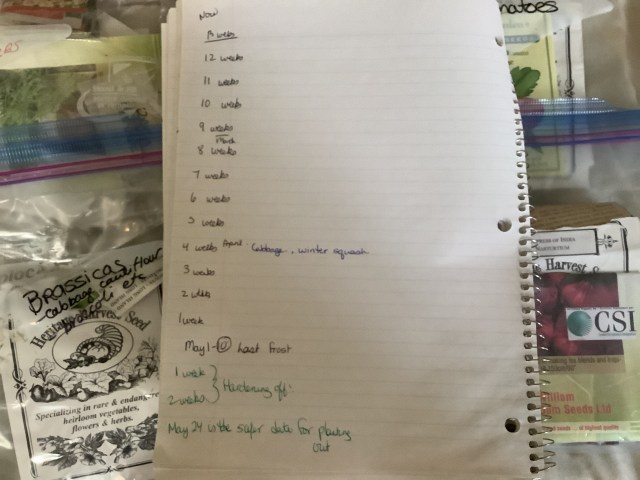 Now
13 weeks
12 weeks
11 weeks
10 weeks
9 weeks
March
8 weeks
7 weeks
6 weeks
5 weeks
4 weeks April Cabbage, winter squash
3 weeks
2 weeks
1 week
May 1-10 Last frost
1 week
Hardening off
2 weeks
May 24 is the safer date for planting
out
Brassicas
Cabbage cauliflower
etc
Seed
Specializing in rare & endang
heirloom vegetables,
flowers & herbs.
matoes
Harvest
CSI
lliam
am Seeds Ltd